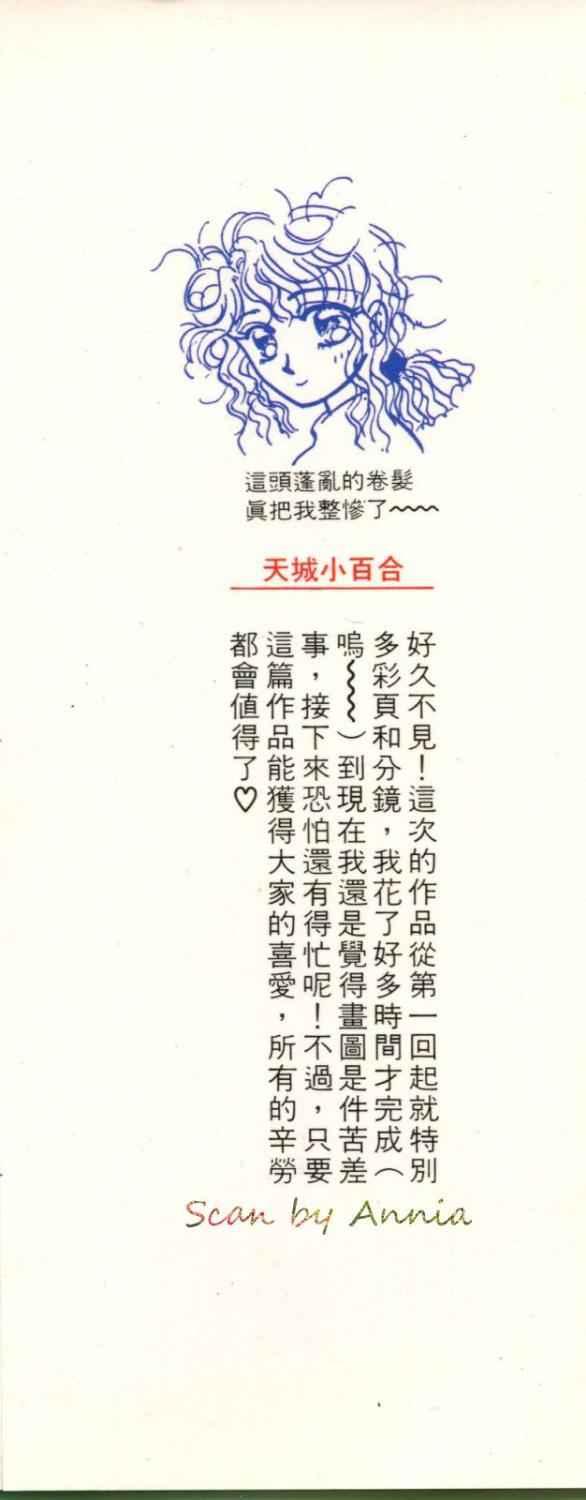 這頭蓬亂的卷髮
眞把我整慘了~~~
天城小百合
好久不見！這次的作品從第一回起就特別
多彩頁和分鏡，我花了好多時間才完成（
嗚~~~）到現在我還是覺得畫圖是件苦差
事，接下來恐怕還有得忙呢！不過，只要
這篇作品能獲得大家的喜愛，所有的辛勞
都會值得了♡
Scan by Annia